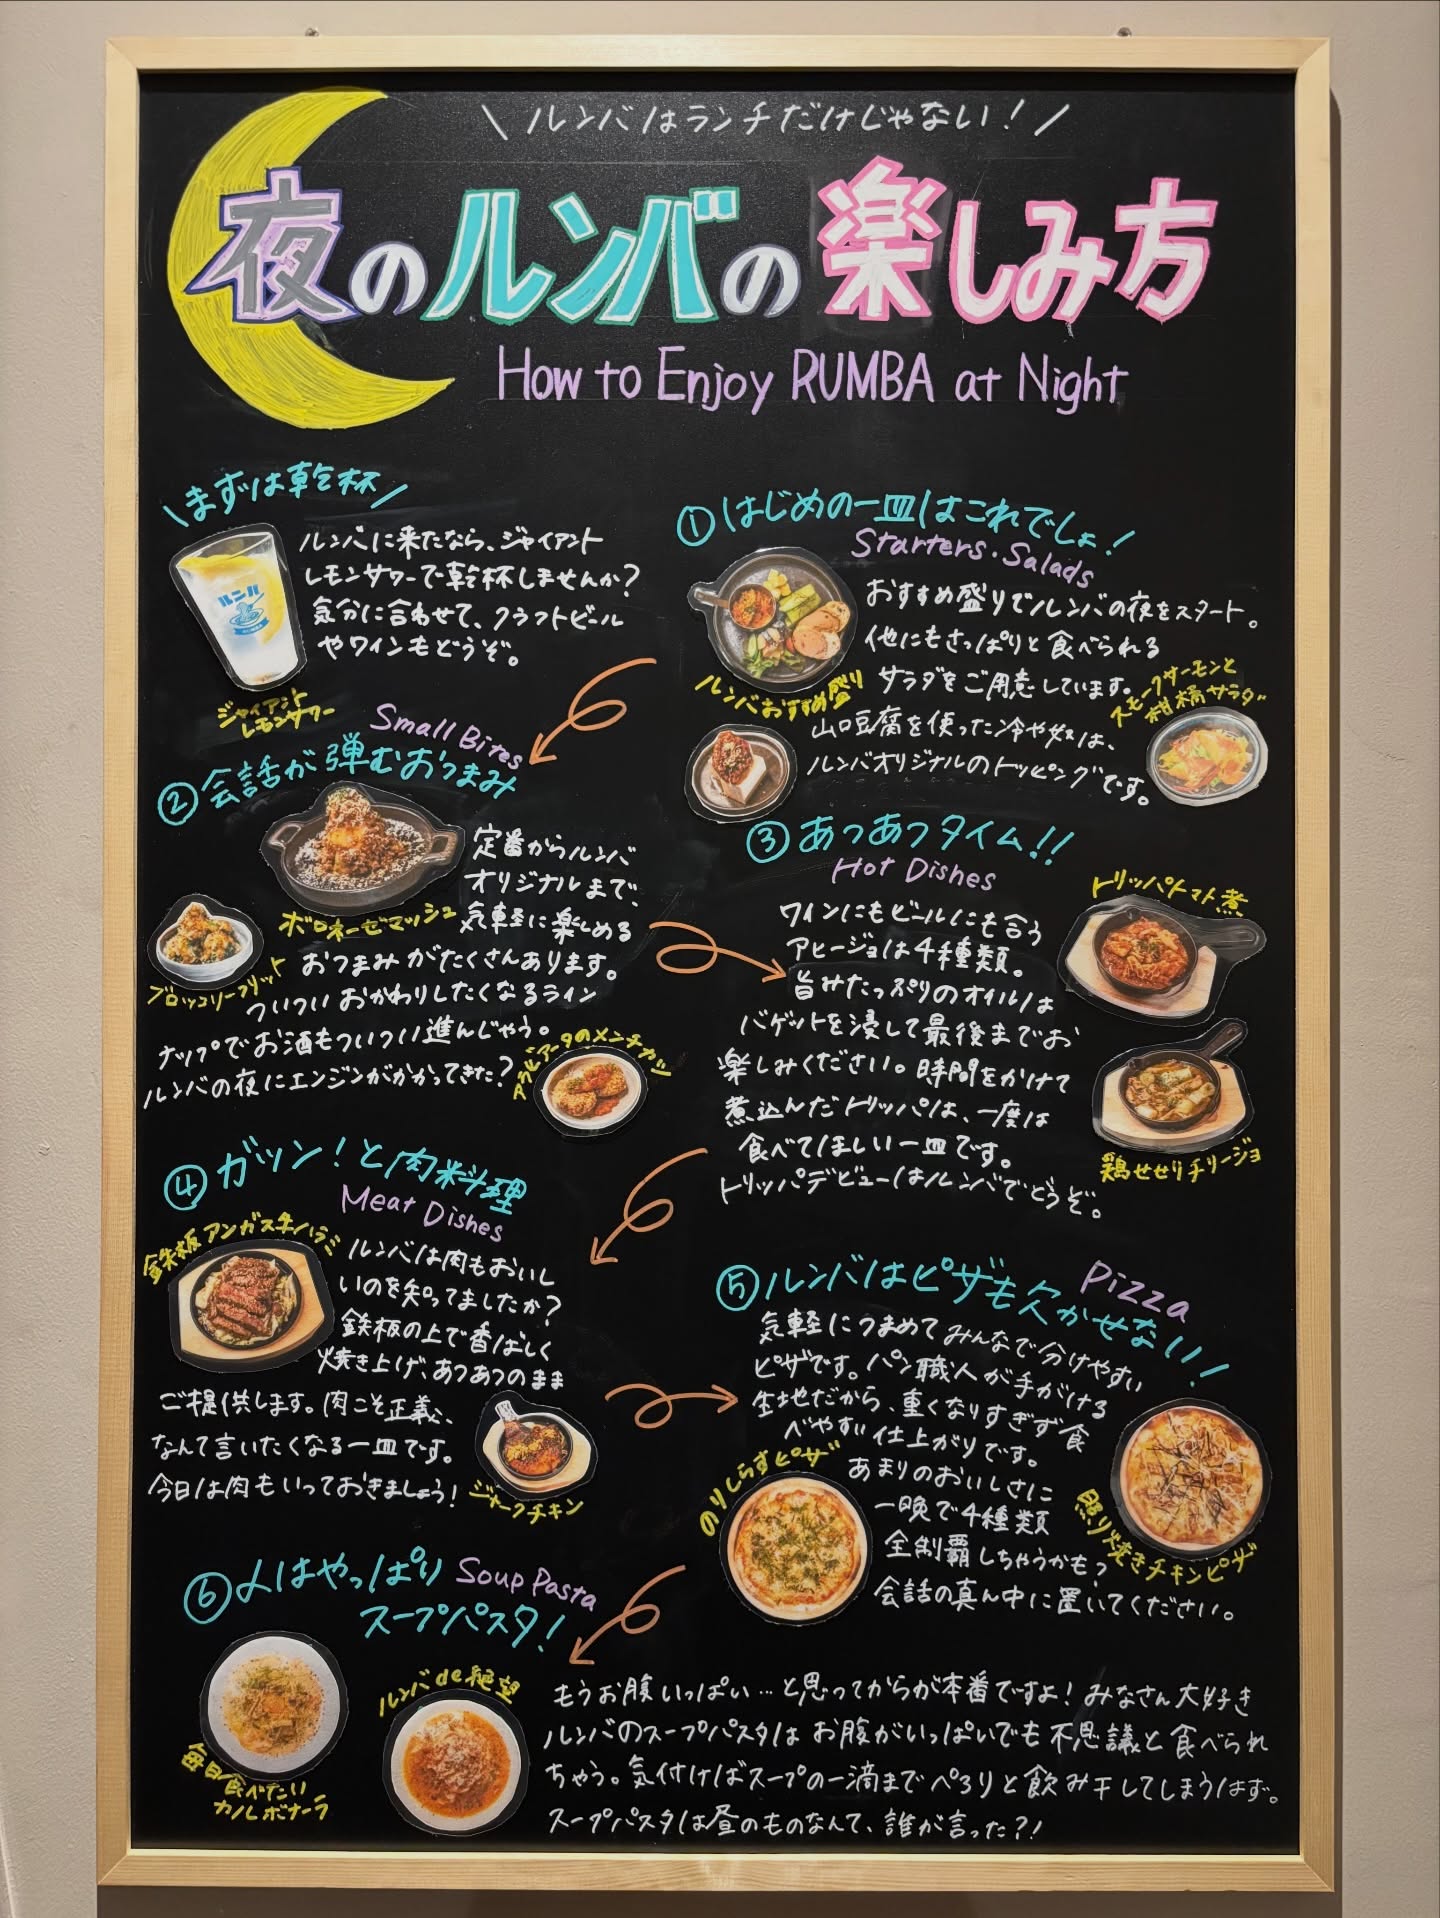 \ルンバはランチだけじゃない!/
夜のルンバの楽しみ方
How to Enjoy RUMBA at Night
\まずは乾杯/
ルンバに来たなら、ジャイアント
レモンサワーで乾杯しませんか?
気分に合わせて、クラフトビール
やワインもどうぞ。
ルンバ
ジャイアント
レモンサワー
①はじめの一皿はこれでしょ!
Starters・Salads
おすすめ盛りでルンバの夜をスタート。
他にもさっぱりと食べられる
サラダをご用意しています。
ルンバおすすめ盛り
スモークサーモンと
柑橘サラダ
山口豆腐を使った冷や奴は、
ルンバオリジナルのトッピングです。
Small Bites
②会話が弾むおつまみ
定番からルンバ
オリジナルまで、
気軽に楽しめる
おつまみがたくさんあります。
ついついおかわりしたくなるライン
ナップでお酒もついつい進んじゃう。
ルンバの夜にエンジンがかかってきた?
ボロネーゼマッシュ
ブロッコリーフリット
アラビアータのメンチカツ
③あつあつタイム!!
Hot Dishes
ワインにもビールにも合う
アヒージョは4種類。
旨みたっぷりのオイルは
バゲットを浸して最後までお
楽しみください。時間をかけて
煮込んだトリッパは、一度は
食べてほしい一皿です。
トリッパデビューはルンバでどうぞ。
トリッパトマト煮
鶏せせりチリージョ
④ガツン!と肉料理
Meat Dishes
鉄板アンガス牛ハラミ
ルンバは肉もおいし
いのを知ってましたか?
鉄板の上で香ばしく
焼き上げ、あつあつのまま
ご提供します。肉こそ正義、
なんて言いたくなる一皿です。
今日は肉もいっておきましょう!
ジャークチキン
⑤ルンバはピザも欠かせない!
Pizza
気軽につまめてみんなで分けやすい
ピザです。パン職人が手がける
生地だから、重くなりすぎず食
べやすい仕上がりです。
あまりのおいしさに
一晩で4種類
全制覇しちゃうかも?
会話の真ん中に置いてください。
のりしらすピザ
照り焼きチキンピザ
⑥〆はやっぱり
スープパスタ!
Soup Pasta
毎日食べたい
カルボナーラ
ルンバde絶望
もうお腹いっぱい…と思ってからが本番ですよ!みなさん大好き
ルンバのスープパスタはお腹がいっぱいでも不思議と食べられ
ちゃう。気付けばスープの一滴までペろりと飲み干してしまうはず。
スープパスタは昼のものなんて、誰が言った?!